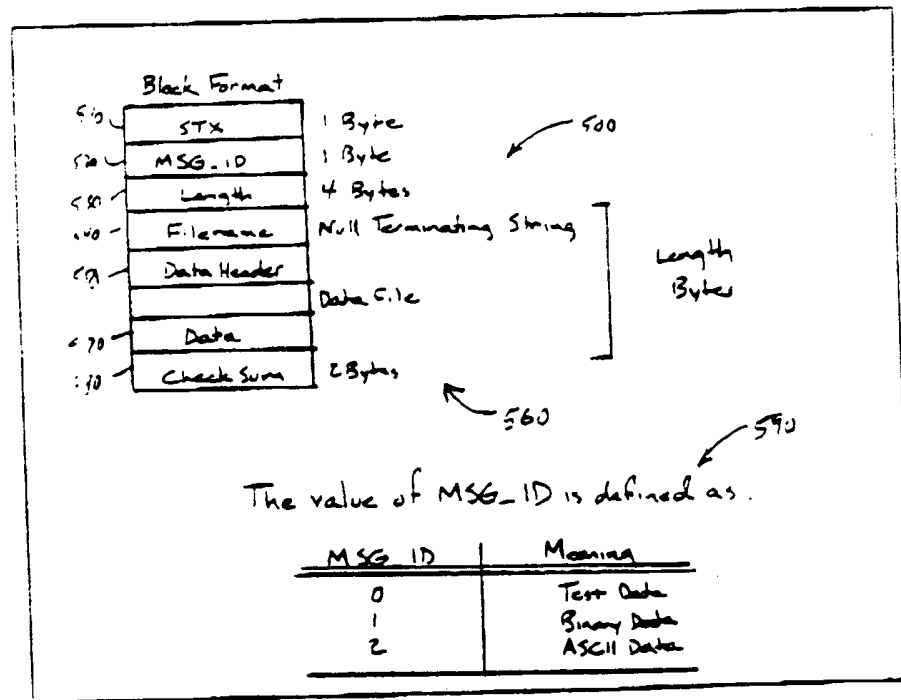 Block Format
510 STX 1 Byte
520 MSG_ID 1 Byte 500
Length 4 Bytes
Filename Null Terminating String
Data Header
Length
Bytes
Data File
Data
Check Sum 2 Bytes
560
590
The value of MSG_ID is defined as.
MSG_ID Meaning
0 Test Data
1 Binary Data
2 ASCII Data